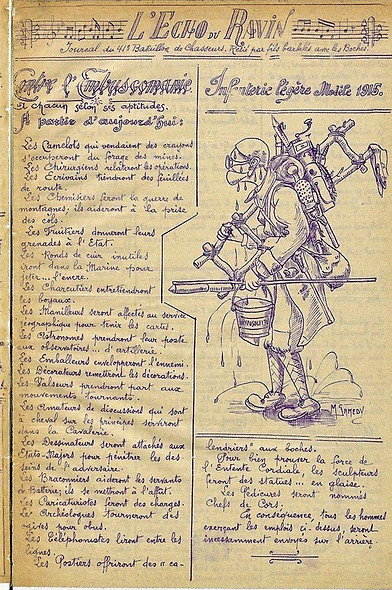 L'Echo du Ravin
Journal du 41e Bataillon de Chasseurs. Relié par fils barbelés avec les Boches.
Contre l'Embuscomanie.
A chacun selon ses aptitudes.
A partir d'aujourd'hui:
Les Camelots qui vendaient des crayons
s'occuperont du forage des mines.
Les Chirurgiens relateront les opérations.
Les Ecrivains tiendront des feuillées
de route.
Les Chemisiers feront la guerre de
montagnes, ils aideront à la prise
des cols.
Les Fruitiers donneront leurs
grenades à l'Etat.
Les Ronds de cuir inutiles
iront dans la Marine pour
jeter... l'encre.
Les Charcutiers entretiendront
les boyaux.
Les Manilleurs seront affectés au service
géographique pour tenir les cartes.
Les Astronomes prendront leur poste
aux observatoires... d'artillerie.
Les Emballeurs envelopperont l'ennemi.
Les Décorateurs remettront les décorations.
Les Valseurs prendront part aux
mouvements tournants.
Les Amateurs de discussions qui sont
à cheval sur les principes serviront
dans la Cavalerie.
Les Dessinateurs seront attachés aux
Etats-Majors pour pénétrer les des
seins de l'adversaire.
Les Braconniers aideront les servants
de Batterie; ils se mettront à l'affût.
Les Caricaturistes feront des charges.
Les Archéologues tourneront des
ogives pour obus.
Les Téléphonistes liront entre les
lignes.
Les Postiers offriront des "ca-
Infanterie légère Modèle 1915.
HYPOSULFITE
M. RAMEDY
lendriers" aux boches.
Pour bien prouver la force de
l'Entente Cordiale, les sculpteurs
feront des statues... en glaise.
Les Pédicures seront nommés
Chefs de Cors.
En conséquence tous les hommes
exerçant les emplois ci-dessus, seront
incessamment envoyés sur l'arrière